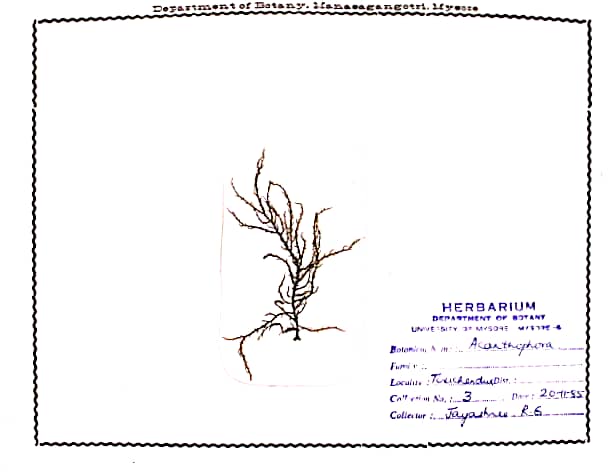 Department of Botany, Manasagangotri, Mysore
HERBARIUM
DEPARTMENT OF BOTANY
UNIVERSITY OF MYSORE MYSORE-6
Botanical Name: Acanthophora
Family:
Locality: Tiruchendur
Collection No.: 3 Date: 20-11-85
Collector: Jayashree R.G